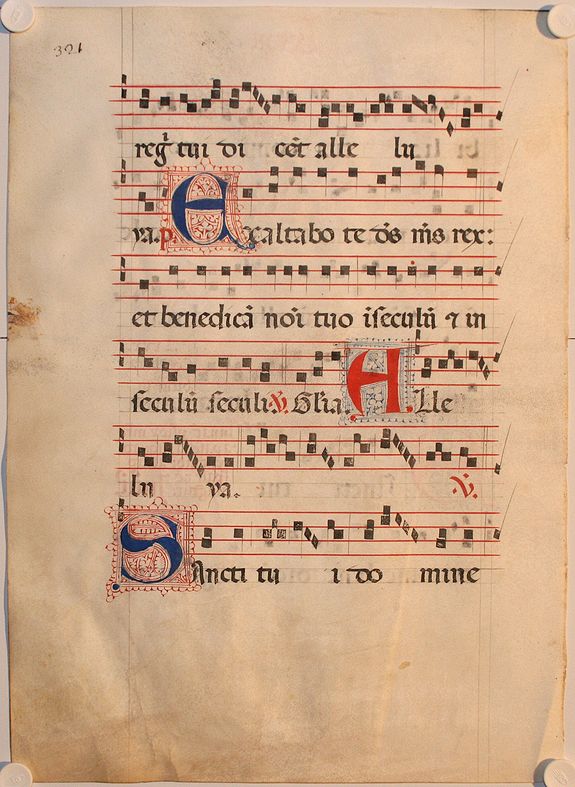 321
reg̃ tui di cẽt alle lu
ya. p. Exaltabo te dõs m̃s rex:
et benedicã noĩ tuo ĩseculũ ⁊ in
seculũ seculi. V. Gl̃ia. Alle
lu ya. V.
Sancti tu i do mine